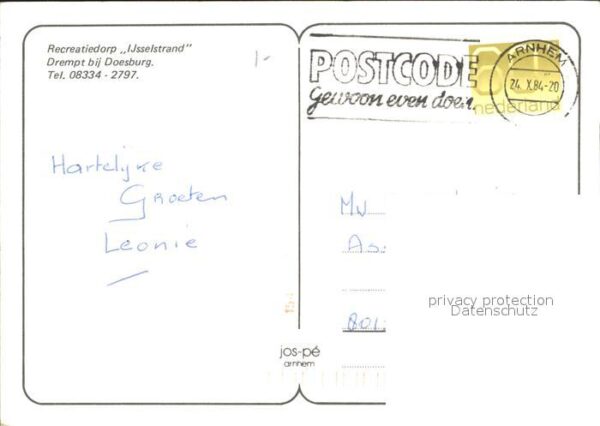 Recreatiedorp „IJsselstrand"
Drempt bij Doesburg.
Tel. 08334 - 2797.
1-
POSTCODE
gewoon even doen.
ARNHEM
24. X.84-20
nederland
Hartelijke
Groeten
Leonie
Mw
As
801
privacy protection
Datenschutz
jos-pé
arnhem